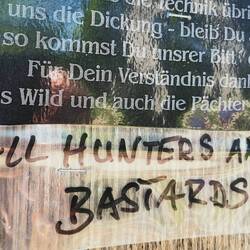 die Technik übri
uns die Dickung - bleibst Du
so kommst Du unsrer Bitt'
Für Dein Verständnis dan
s Wild und auch die Pächter
LL HUNTERS A
BASTARDS